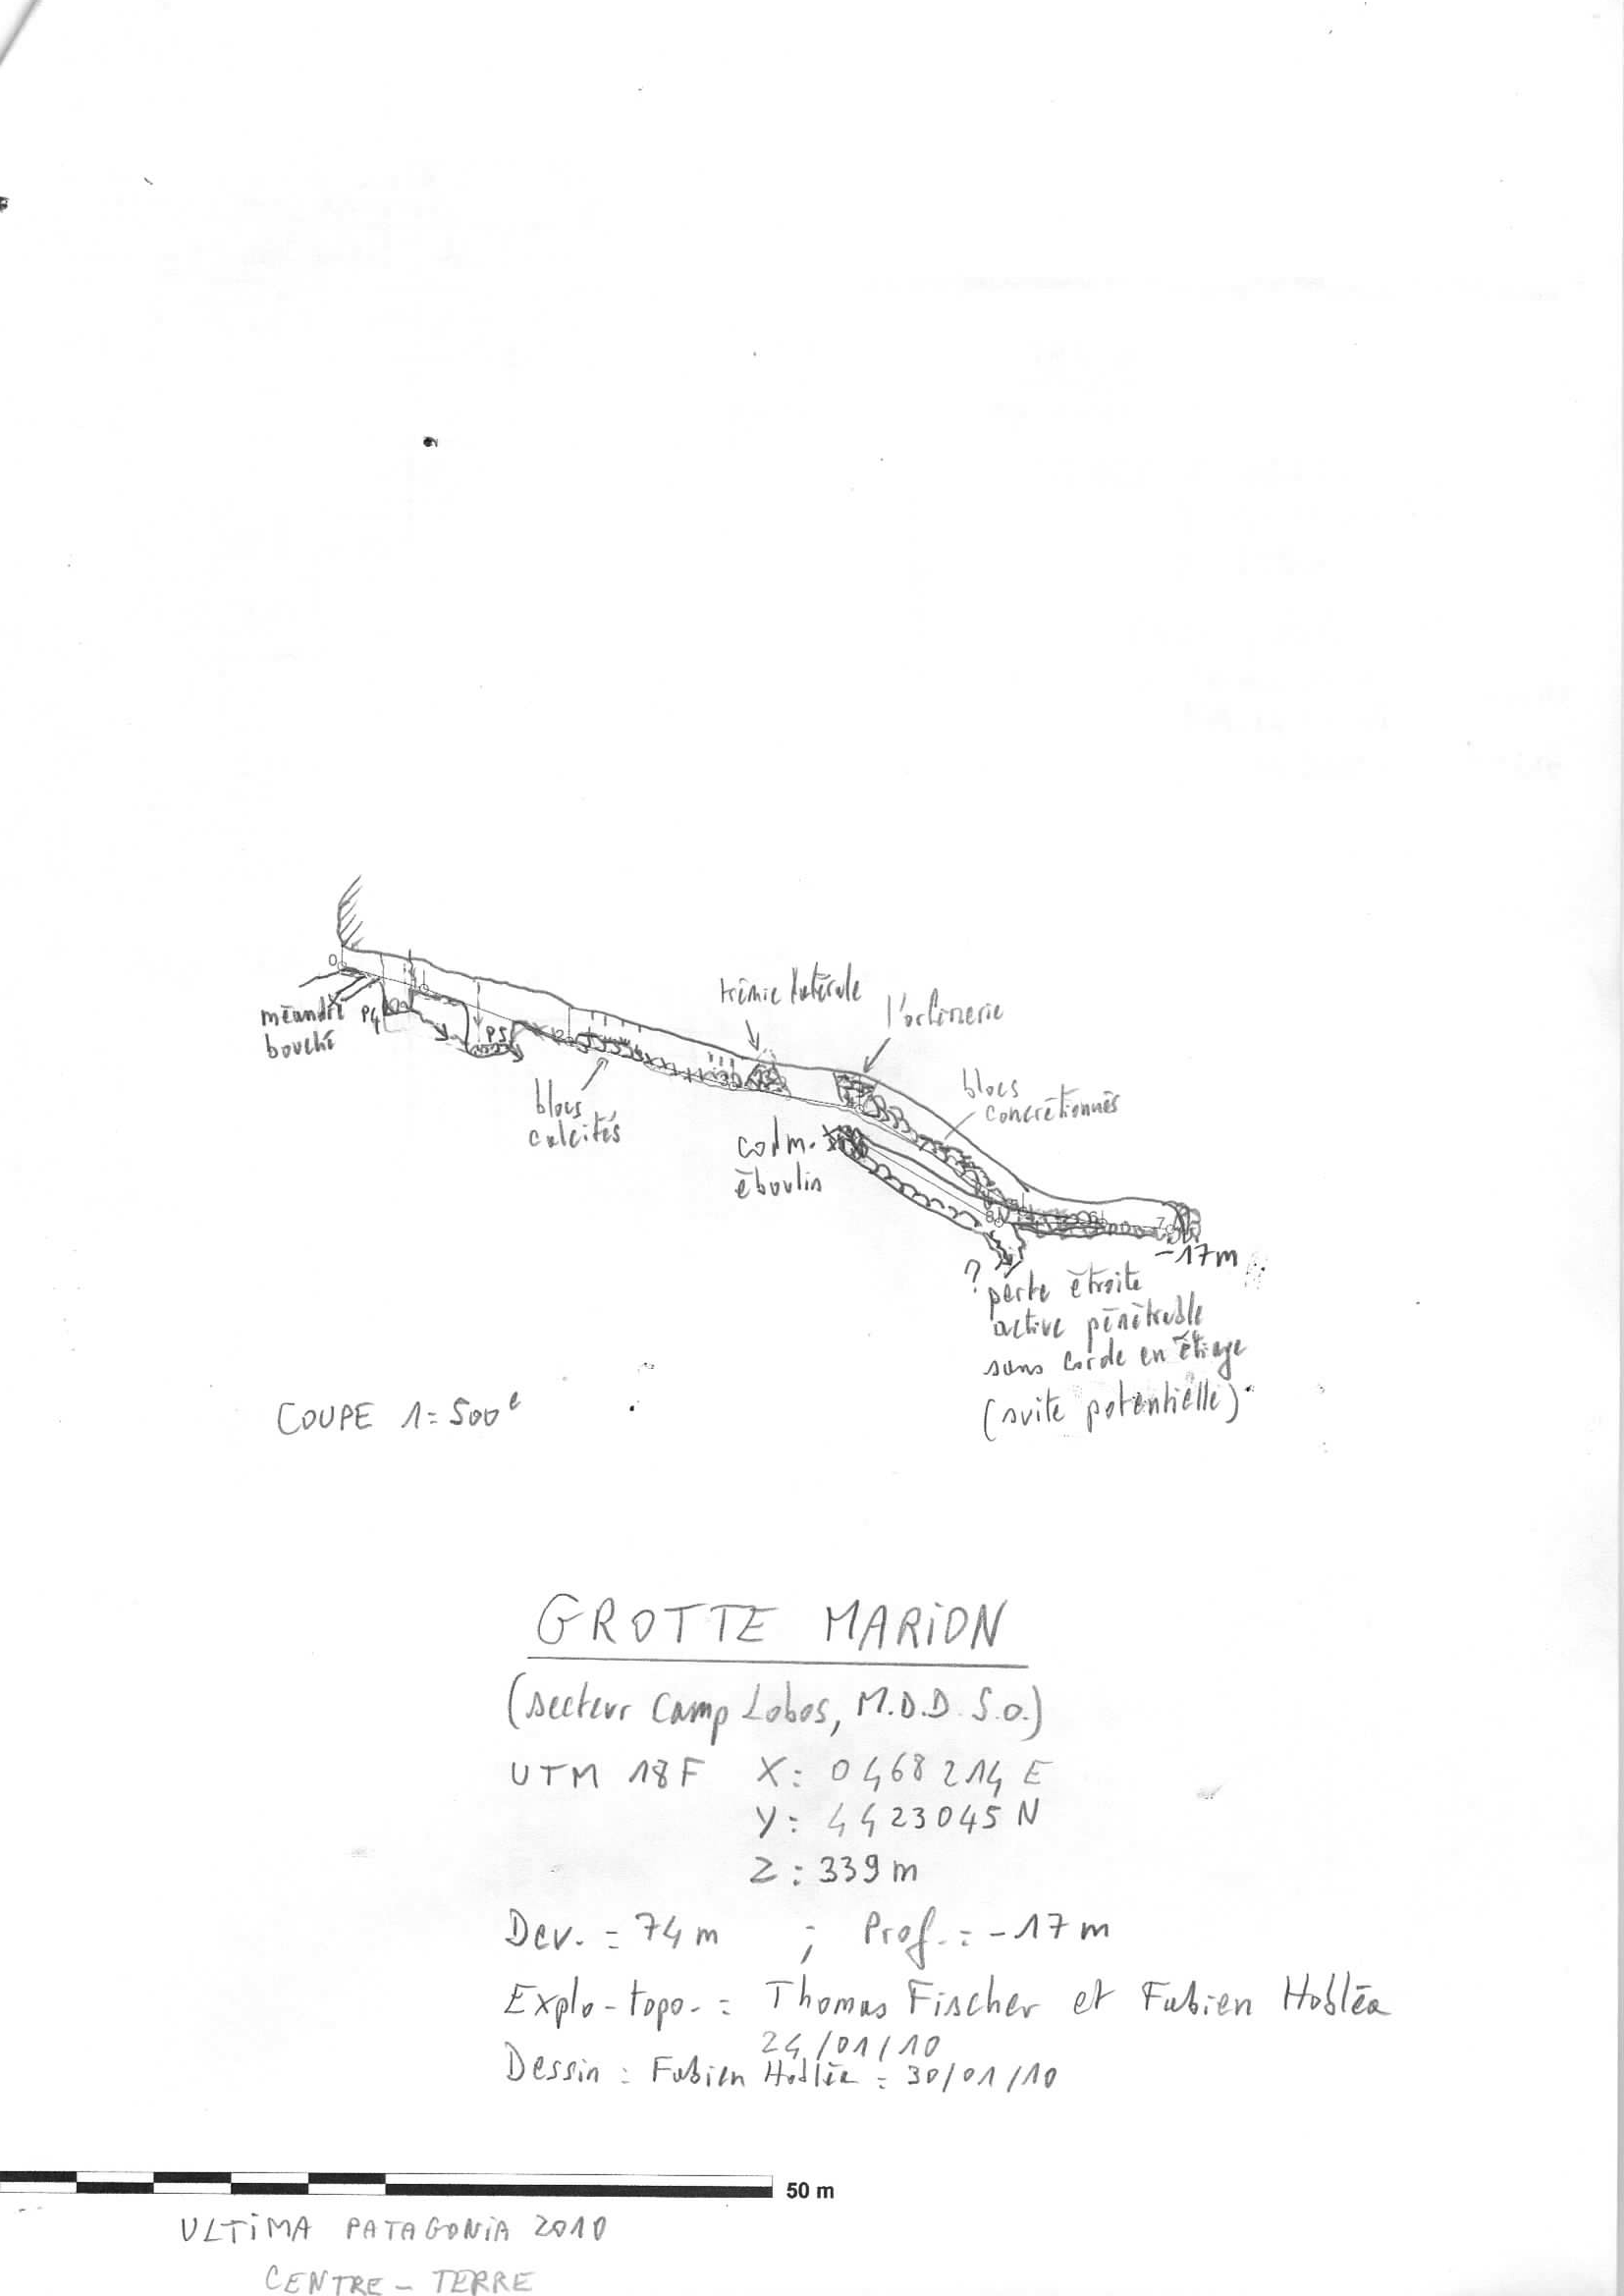 0
méandre
bouché
P4
1
P5
2
trémie latérale
l'oclonerie
blocs
calcités
blocs
concrétionnés
colm.
éboulis
8
5
6
7
-17m
?
perte étroite
active pénétrable
sans corde en étiage
(suite potentielle)
COUPE 1=500e
GROTTE MARION
(secteur Camp Lobos, M.D.D S.O.)
UTM 18F X: 0468214 E
Y: 4423045 N
Z: 339m
Dev. = 74m ; Prof. = -17m
Explo-topo. = Thomas Fischer et Fabien Hobléa
24/01/10
Dessin : Fabien Hobléa : 30/01/10
50 m
ULTIMA PATAGONIA 2010
CENTRE - TERRE